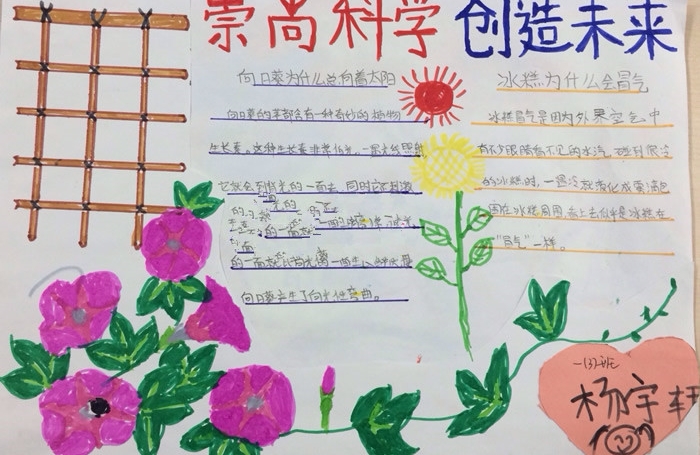 崇尚科学 创造未来
向日葵为什么总向着太阳
向日葵的茎部含有一种奇妙的植物
生长素。这种生长素非常怕光。一遇光线照射
它就会到背光的一面去,同时它还刺激
的一面
向日葵产生了向光性弯曲。
冰糕为什么会冒气
冰糕冒气是因为外界空气中
有不少眼睛看不见的水汽,碰到很冷
的冰糕时,一遇冷就液化成雾滴包
围在冰糕周围,看上去似乎是冰糕在
"冒气"一样。
一(3)班
杨宇轩